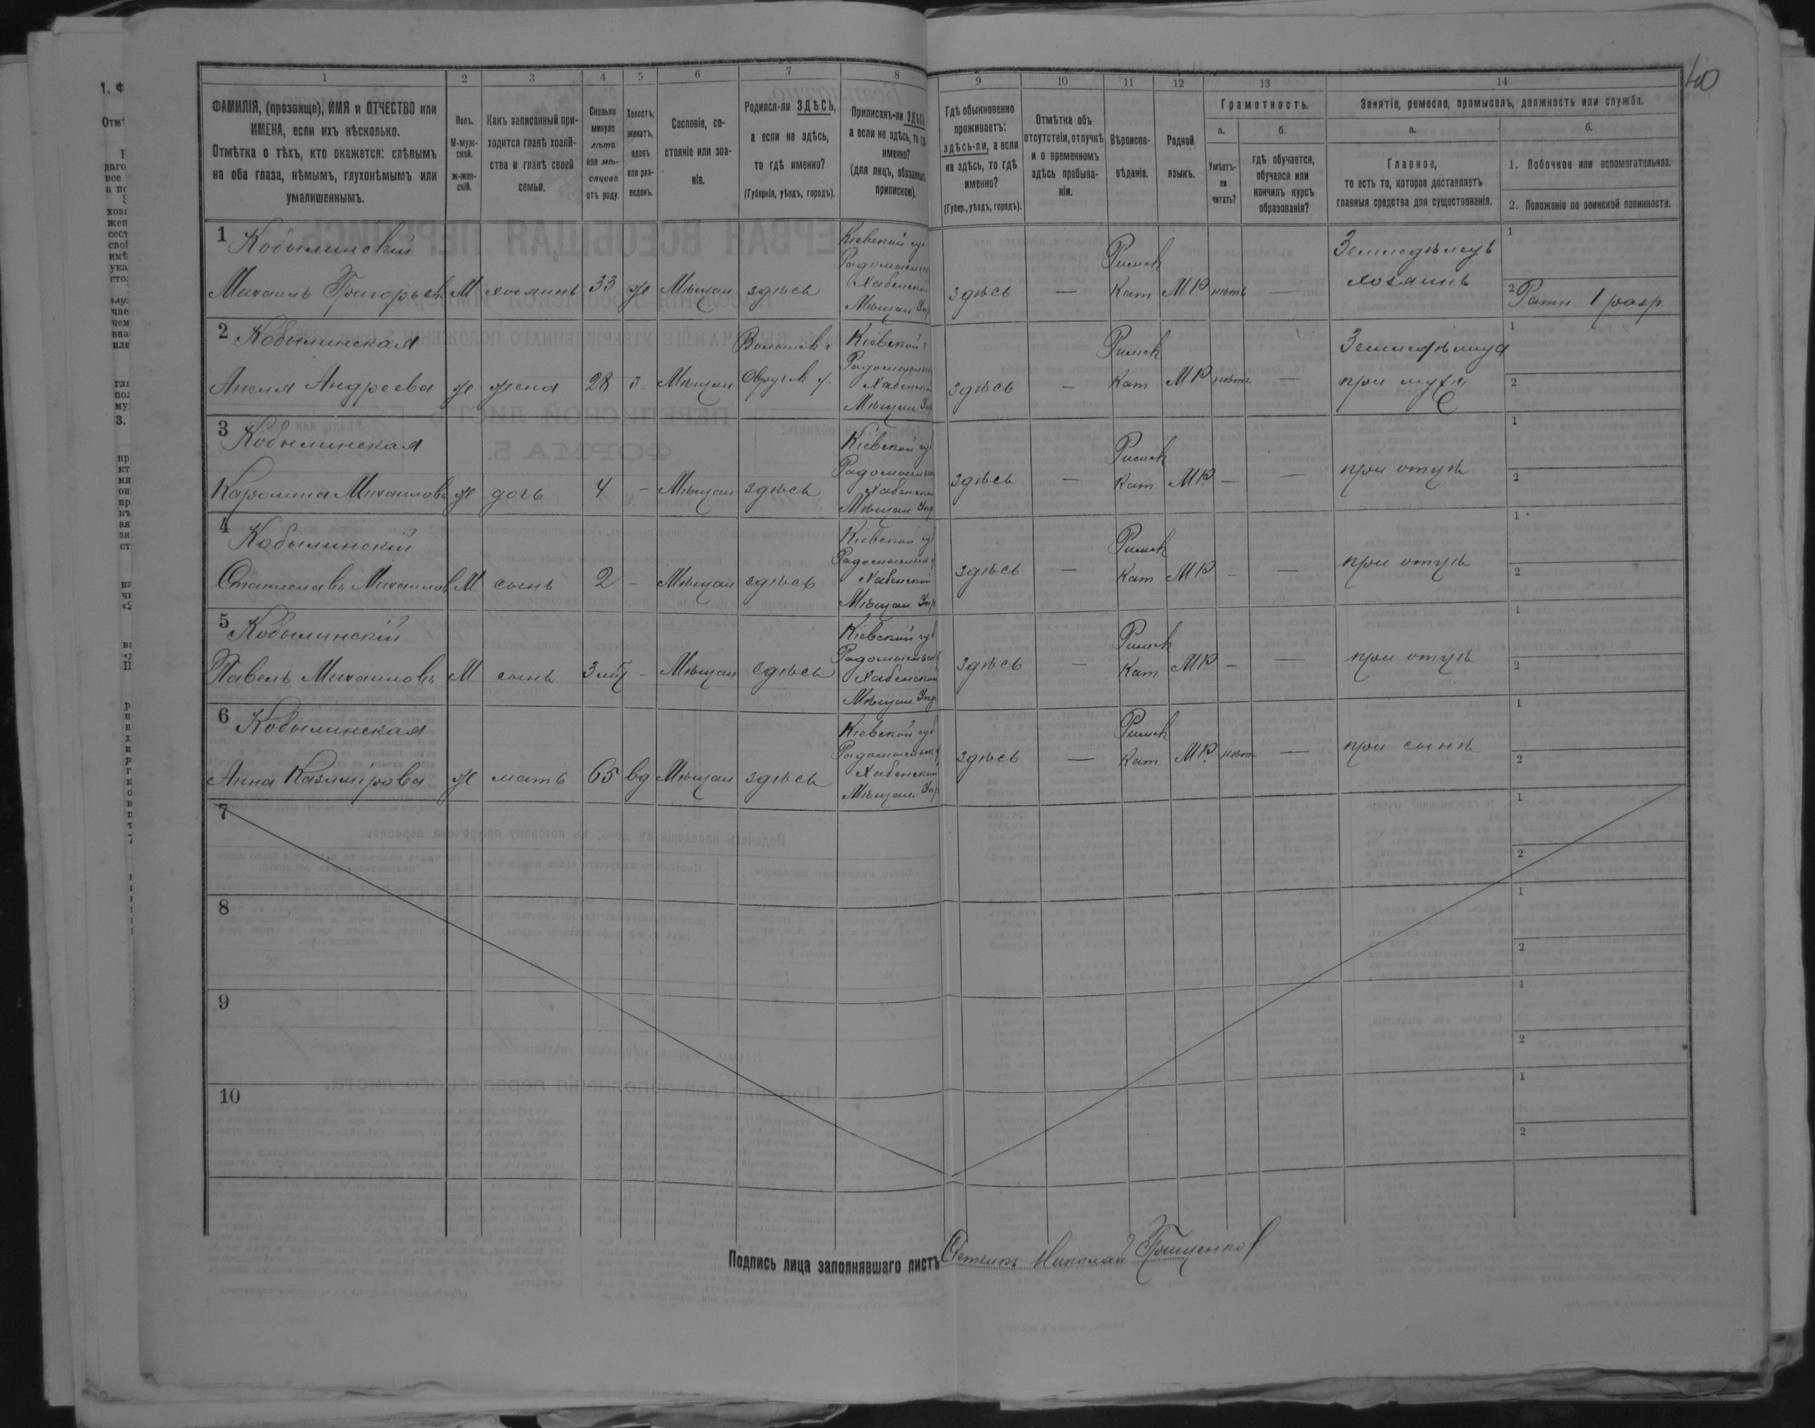 40
1 2 3 4 5 6 7 8 9 10 11 12 13 14
ФАМИЛІЯ, (прозвище), ИМЯ и ОТЧЕСТВО или
ИМЕНА, если ихъ нѣсколько.
Отмѣтка о тѣхъ, кто окажется: слѣпымъ
на оба глаза, нѣмымъ, глухонѣмымъ или
умалишеннымъ.
Полъ.
М-муж-
ской.
ж-жен-
скій.
Какъ записанный при-
ходится главѣ хозяй-
ства и главѣ своей
семьи.
Сколько
минуло
лѣтъ
или мѣ-
сяцевъ
отъ роду.
Холостъ,
женатъ,
вдовъ
или раз-
веденъ.
Сословіе, со-
стояніе или зва-
ніе.
Родился-ли ЗДѢСЬ,
а если не здѣсь,
то гдѣ именно?
(Губернія, уѣздъ, городъ).
Приписанъ-ли ЗДѢСЬ
а если не здѣсь, то гдѣ
именно?
(для лицъ, обязанныхъ
припискою).
Гдѣ обыкновенно
проживаетъ:
здѣсь-ли, а если
не здѣсь, то гдѣ
именно?
(Губер., уѣздъ, городъ).
Отмѣтка объ
отсутствіи, отлучкѣ
и о временномъ
здѣсь пребыва-
ніи.
Вѣроиспо-
вѣданіе.
Родной
языкъ.
Грамотность.
а.
б.
Умѣетъ-
ли
читать?
гдѣ обучается,
обучался или
кончилъ курсъ
образованія?
Занятіе, ремесло, промыселъ, должность или служба.
а.
б.
Главное,
то есть то, которое доставляетъ
главныя средства для существованія.
1. Побочное или вспомогательное.
2. Положеніе по воинской повинности.
1 Кобылинскій
Михаилъ Григорьевъ М хозяинъ 33 ж Мѣщан здѣсь
Кіевской губ
Радомысльск
Хабенской
Мѣщан Упр
здѣсь —
Римск
Кат МР нѣтъ —
Земледѣлецъ
хозяинъ
1
2 Ратн 1 разр
2 Кобылинская
Анеля Андреева ж жена 28 з Мѣщан
Волынск г
Овруч у.
Кіевской г
Радомысльск
Хабенской
Мѣщан Упр
здѣсь —
Римск
Кат МР нѣтъ —
Земледѣлица
при мужѣ
1
2
3 Кобылинская
Каролина Михаилова ж дочь 4 - Мѣщан здѣсь
Кіевской губ
Радомысльск
Хабенской
Мѣщан Упр
здѣсь —
Римск
Кат МР — —
при отцѣ
1
2
4 Кобылинскій
Станиславъ Михаилов М сынъ 2 - Мѣщан здѣсь
Кіевской губ
Радомысльск
Хабенской
Мѣщан Упр
здѣсь —
Римск
Кат МР — —
при отцѣ
1
2
5 Кобылинскій
Павелъ Михаиловъ М сынъ 3 мѣс - Мѣщан здѣсь
Кіевской губ
Радомысльск
Хабенской
Мѣщан Упр
здѣсь —
Римск
Кат МР — —
при отцѣ
1
2
6 Кобылинская
Анна Казимірова ж мать 65 вд Мѣщан здѣсь
Кіевской губ
Радомысльск
Хабенской
Мѣщан. Упр
здѣсь —
Римск
Кат МР. нѣтъ —
при сынѣ
1
2
7
1
2
8
1
2
9
1
2
10
1
2
Подпись лица заполнявшаго листъ Николай